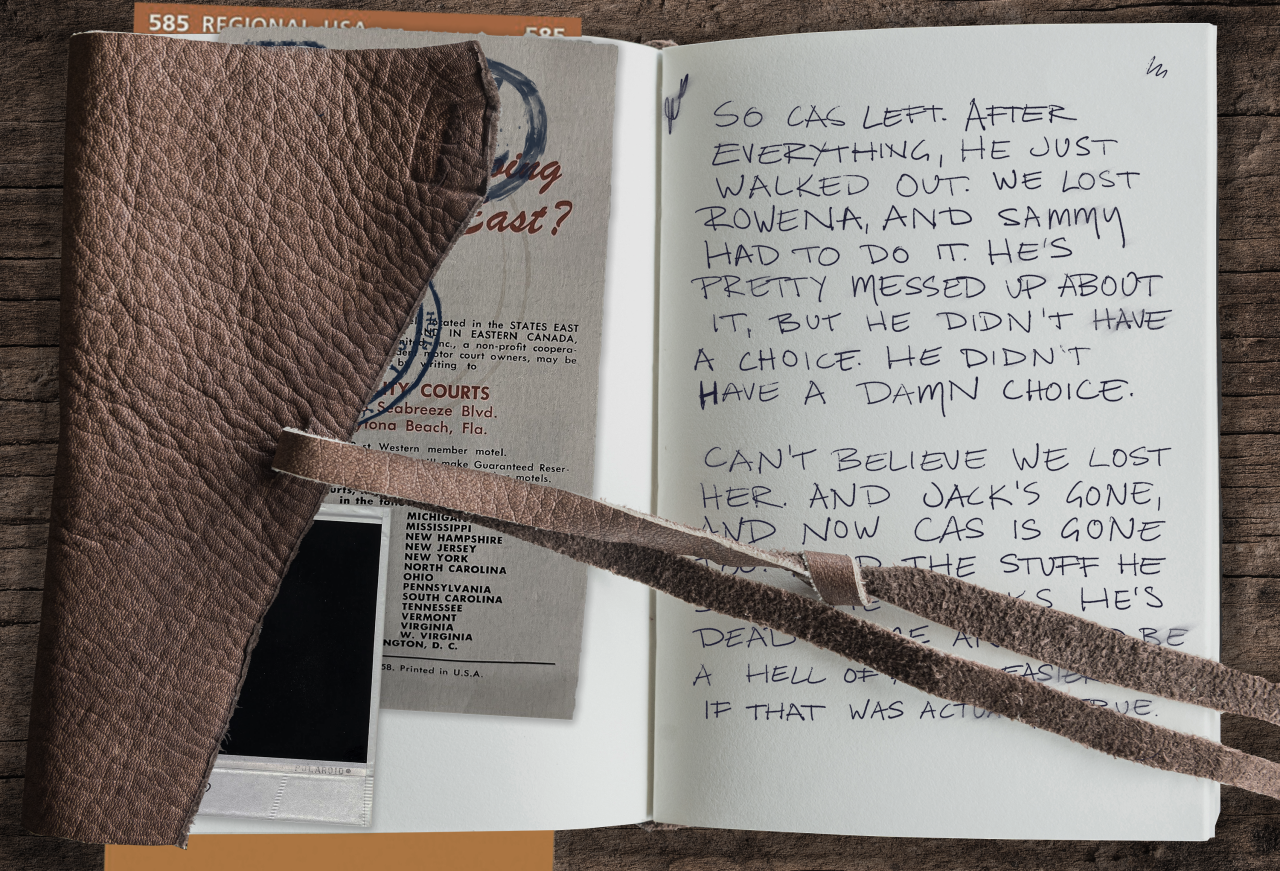 585 REGIONAL USA 585
East?
cated in the STATES EAST
IN EASTERN CANADA,
Inc., a non-profit coopera-
motor court owners, may be
writing to
TY COURTS
Seabreeze Blvd.
tona Beach, Fla.
st Western member motel.
will make Guaranteed Reser-
motels.
in the
MICHIGAN
MISSISSIPPI
NEW HAMPSHIRE
NEW JERSEY
NEW YORK
NORTH CAROLINA
OHIO
PENNSYLVANIA
SOUTH CAROLINA
TENNESSEE
VERMONT
VIRGINIA
W. VIRGINIA
NGTON, D. C.
58. Printed in U.S.A.
POLAROID®
SO CAS LEFT. AFTER
EVERYTHING, HE JUST
WALKED OUT. WE LOST
ROWENA, AND SAMMY
HAD TO DO IT. HE'S
PRETTY MESSED UP ABOUT
IT, BUT HE DIDN'T HAVE
A CHOICE. HE DIDN'T
HAVE A DAMN CHOICE.
CAN'T BELIEVE WE LOST
HER. AND JACK'S GONE,
AND NOW CAS IS GONE
THE STUFF HE
HE'S
BE
A HELL OF EASIER
IF THAT WAS ACTUALLY TRUE.